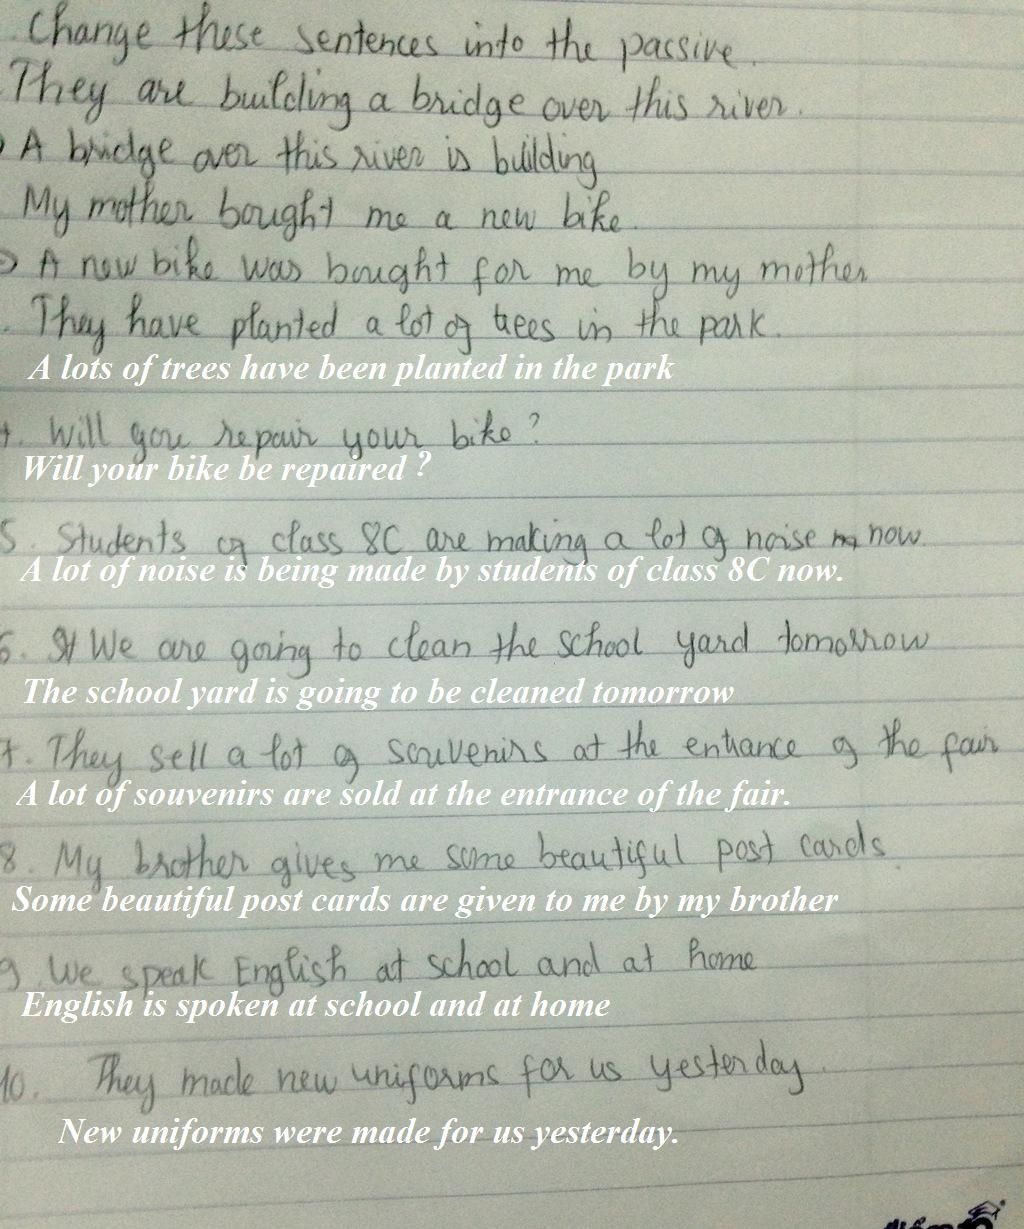 Change these sentences into the passive.
They are building a bridge over this river.
A bridge over this river is building
My mother bought me a new bike.
A new bike was bought for me by my mother
They have planted a lot of trees in the park.
A lots of trees have been planted in the park
Will you repair your bike?
Will your bike be repaired ?
5. Students of class 8C are making a lot of noise now.
A lot of noise is being made by students of class 8C now.
6. We are going to clean the school yard tomorrow
The school yard is going to be cleaned tomorrow
7. They sell a lot of souvenirs at the entrance of the fair
A lot of souvenirs are sold at the entrance of the fair.
8. My brother gives me some beautiful post cards.
Some beautiful post cards are given to me by my brother
9 We speak English at school and at home
English is spoken at school and at home
10. They made new uniforms for us yesterday.
New uniforms were made for us yesterday.